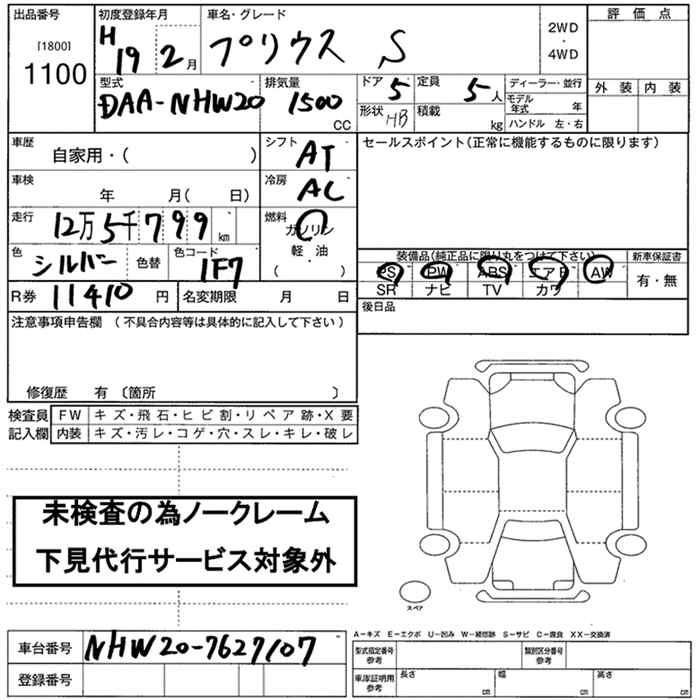 出品番号 初度登録年月 車名・グレード 評価点
[1800] 1100 H 19 2月 プリウス S 2WD・4WD 外装 内装
型式 排気量 ドア 5 定員 5人 ディーラー・並行
DAA-NHW20 1500 CC 形状 HB 積載 kg モデル年式 年
ハンドル 左・右
車歴 自家用・( ) シフト AT セールスポイント(正常に機能するものに限ります)
車検 年 月( 日) 冷房 AC
走行 12万5千799km 燃料 ガソリン 軽・油 ( )
色 シルバー 色替 色コード 1F7 装備品(純正品に限り丸をつけて下さい) 新車保証書
PS PW ABS エアB AW 有・無
SR ナビ TV カワ
R券 11410円 名変期限 月 日 後日品
注意事項申告欄 (不具合内容等は具体的に記入して下さい)
修復歴 有 〔箇所 〕
検査員 FW キズ・飛石・ヒビ割・リペア跡・X要
記入欄 内装 キズ・汚レ・コゲ・穴・スレ・キレ・破レ
未検査の為ノークレーム
下見代行サービス対象外
スペア
A-キズ E-エクボ U-凹み W-補修跡 S-サビ C-腐食 XX-交換済
車台番号 NHW20-7627107 型式指定番号 参考 類別区分番号 参考
登録番号 車庫証明用 参考 長さ cm 幅 cm 高さ cm